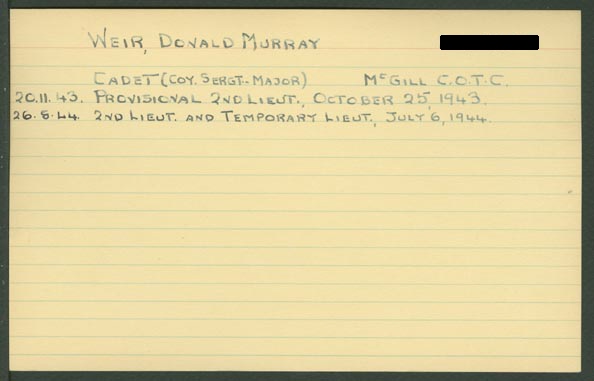 WEIR, DONALD MURRAY
CADET (COY. SERGT.-MAJOR) McGILL C.O.T.C.
20.11.43. PROVISIONAL 2ND LIEUT., OCTOBER 25, 1943.
26.8.44. 2ND LIEUT. AND TEMPORARY LIEUT., JULY 6, 1944.